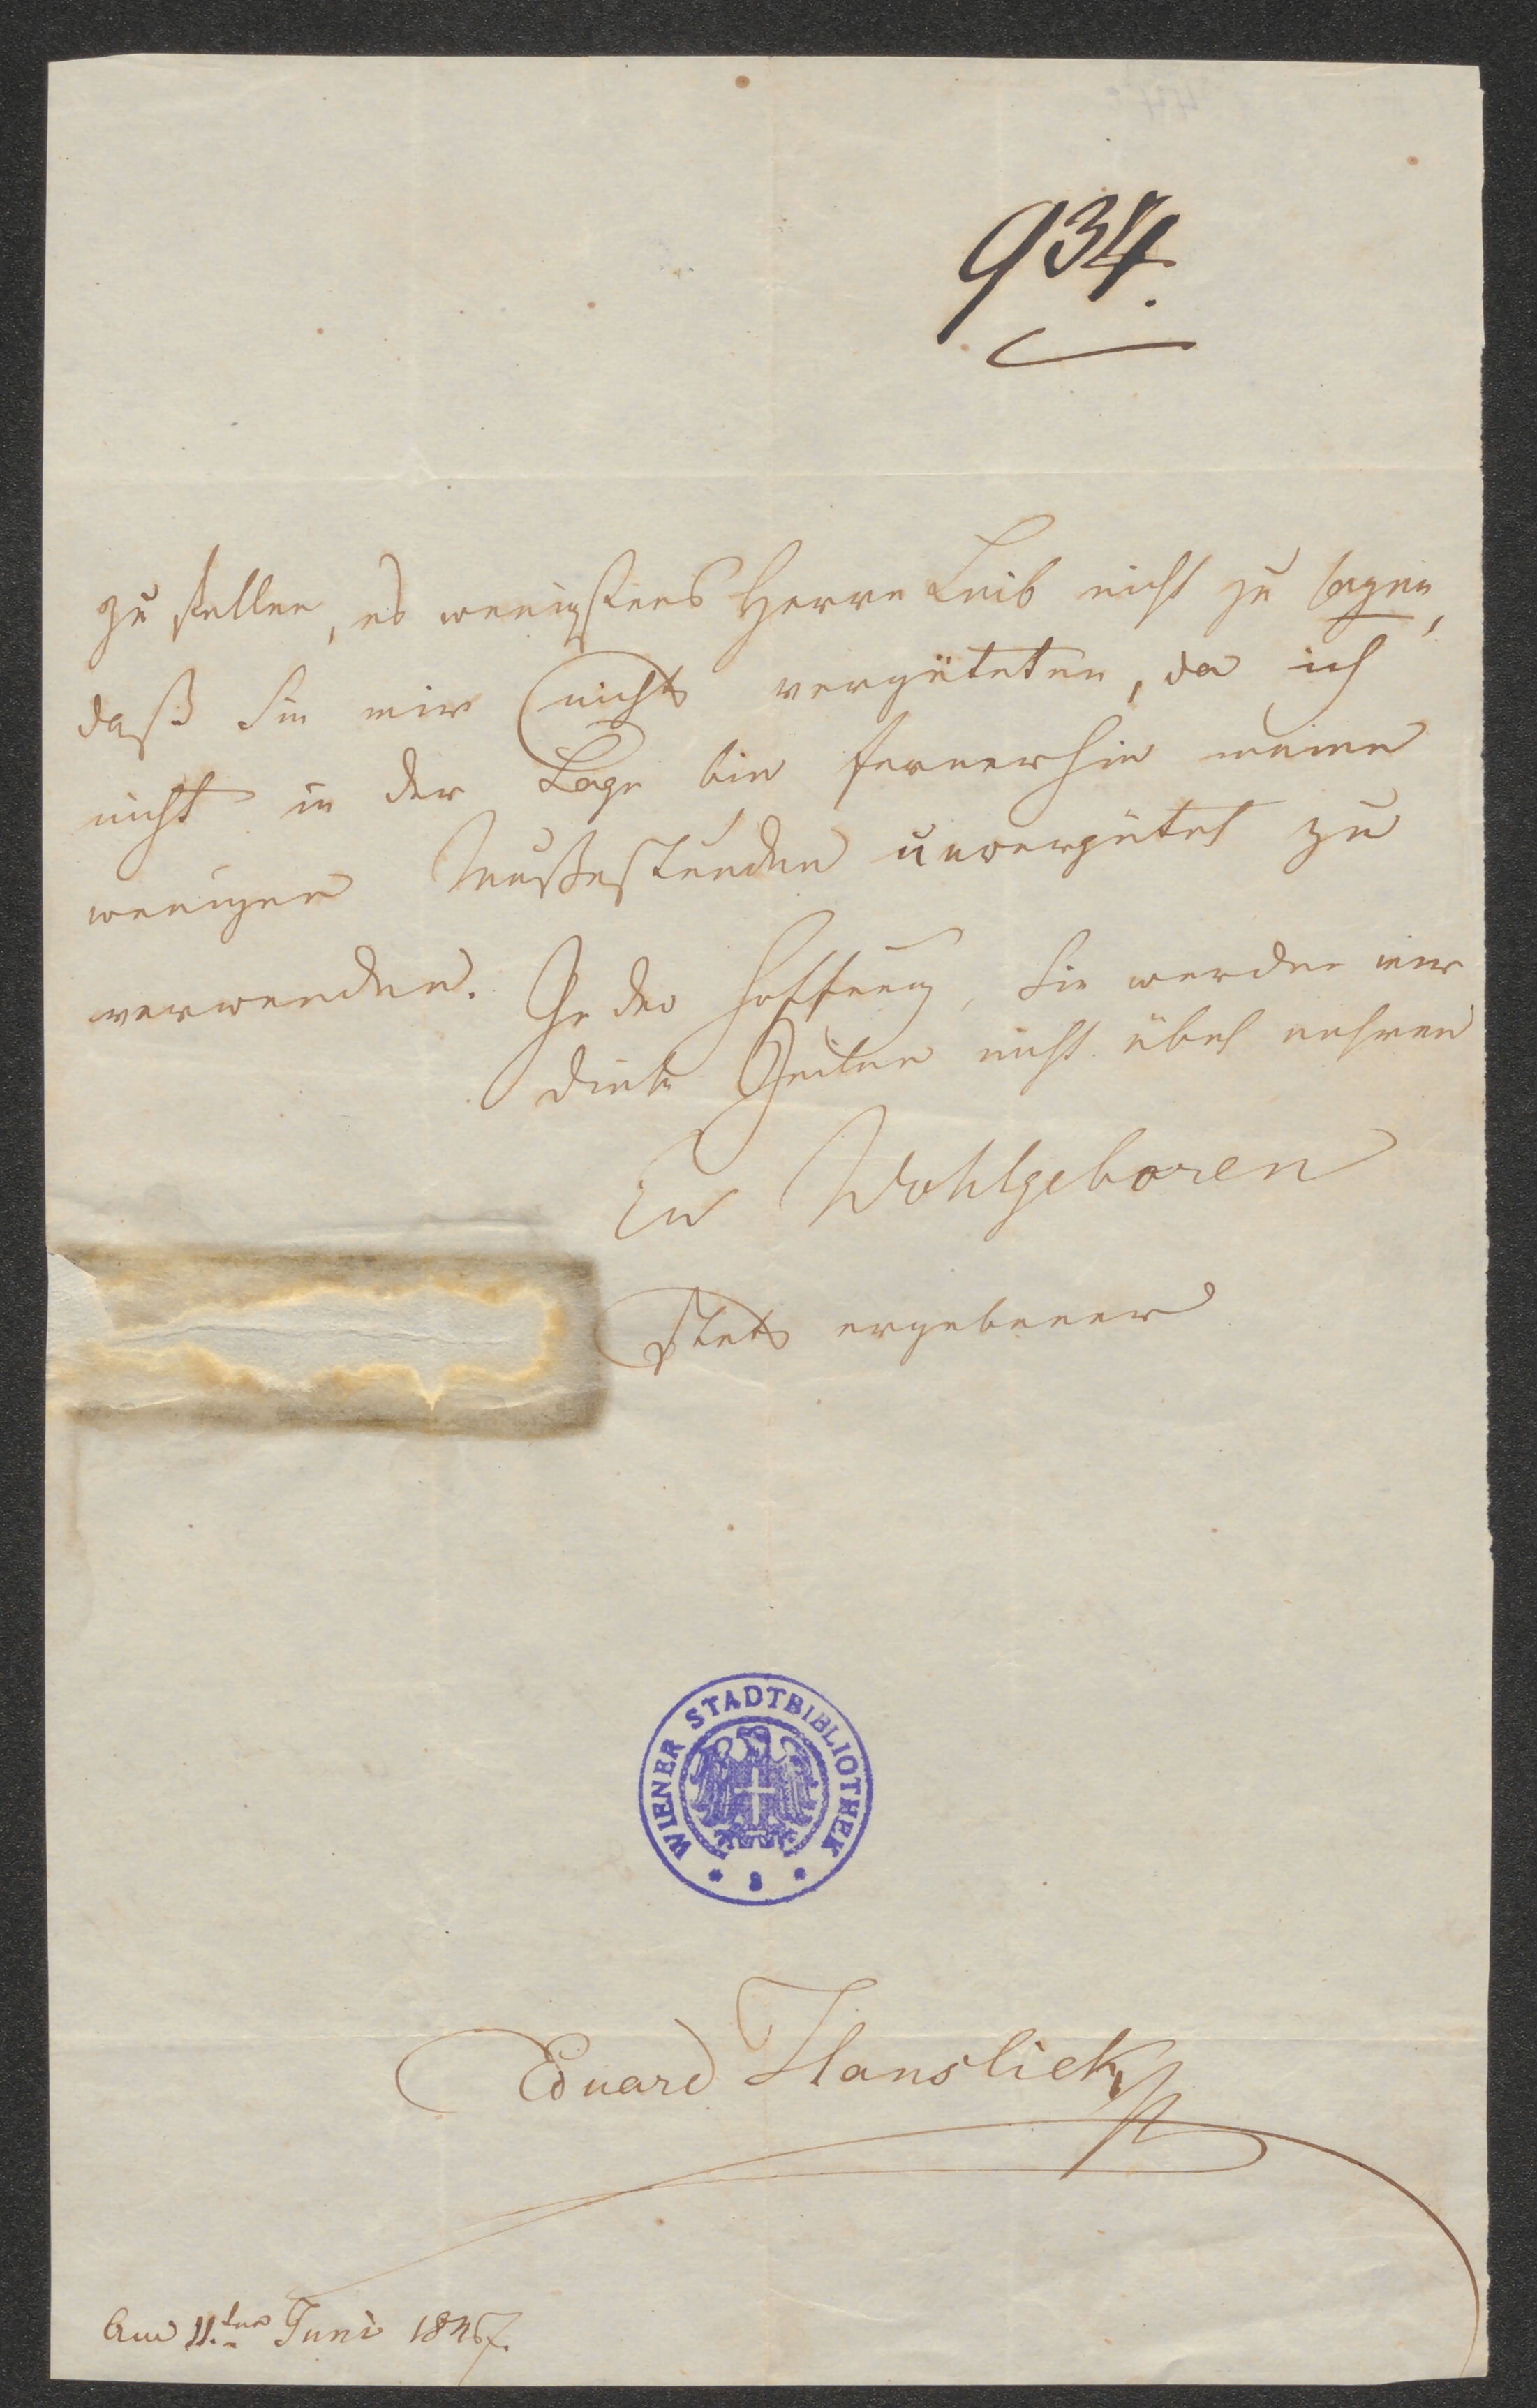 934.
zu stellen, es wenigstens Herrn Leib nicht zu sagen,
daß Sie mir nichts vergüteten, da ich
nicht in der Lage bin fernerhin meine
wenigen Mußestunden unvergütet zu
verwenden. In der Hoffnung, Sie werden mir
diese Zeilen nicht übel nehmen
Eu Wohlgeboren
stets ergebener
WIENER STADTBIBLIOTHEK
Eduard Hanslick
Am 11.ten Juni